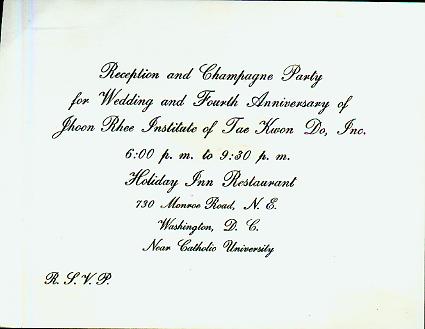 Reception and Champagne Party
for Wedding and Fourth Anniversary of
Jhoon Rhee Institute of Tae Kwon Do, Inc.
6:00 p. m. to 9:30 p. m.
Holiday Inn Restaurant
730 Monroe Road, N. E.
Washington, D. C.
Near Catholic University
R. S. V. P.